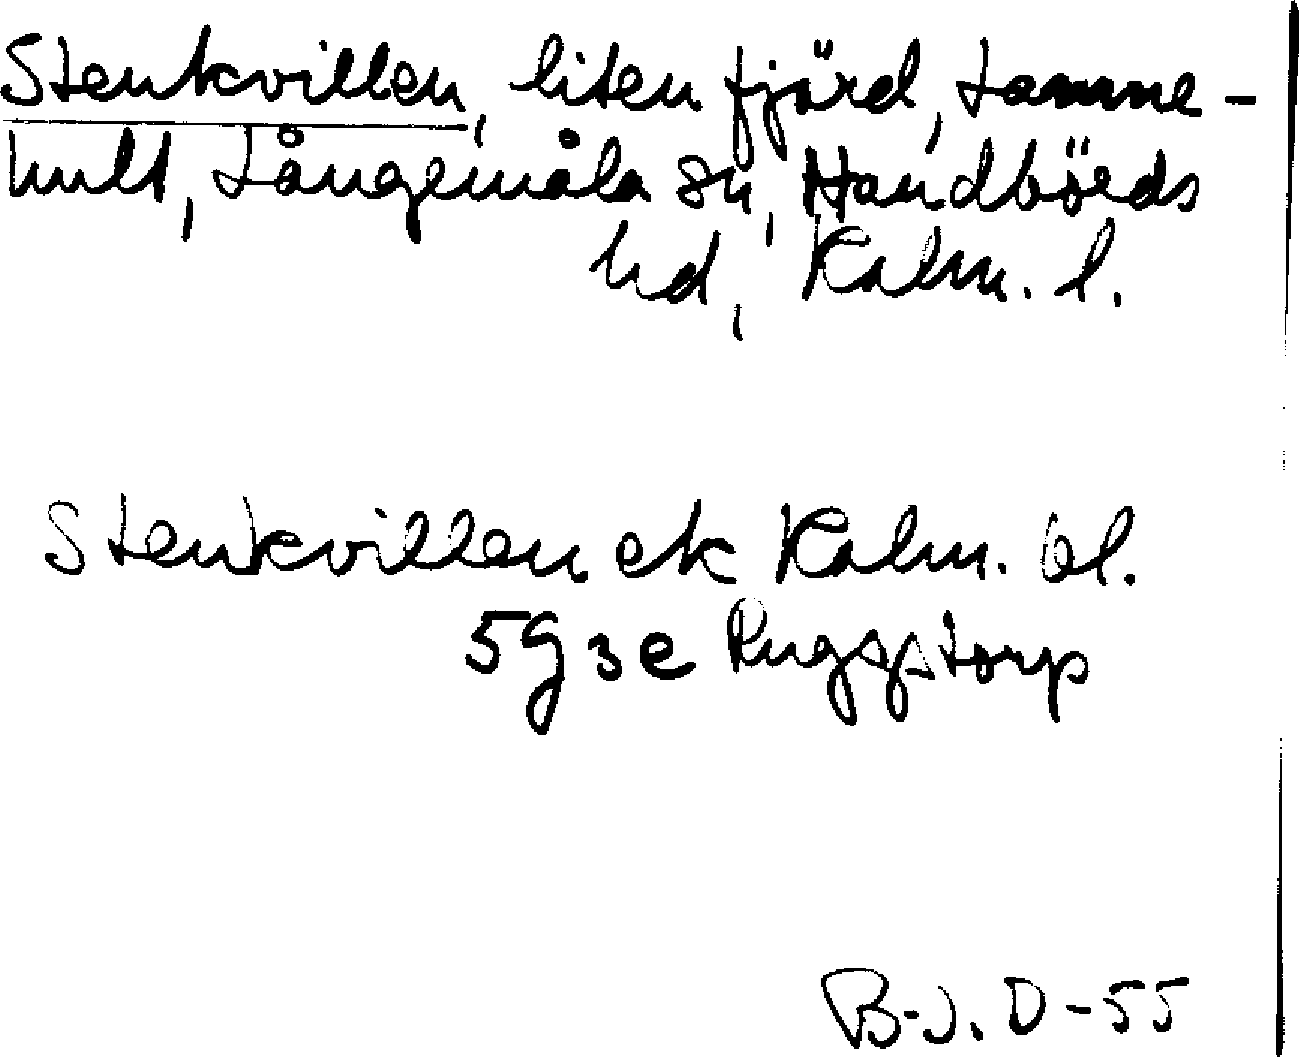 Stenkvillen, liten fjärd, Lamme-
hult, Långemåla sn, Handbörds
hd, Kalm. l.
Stenkvillen ek Kalm. bl.
5g3e Ruggstorp
B-J. D-55